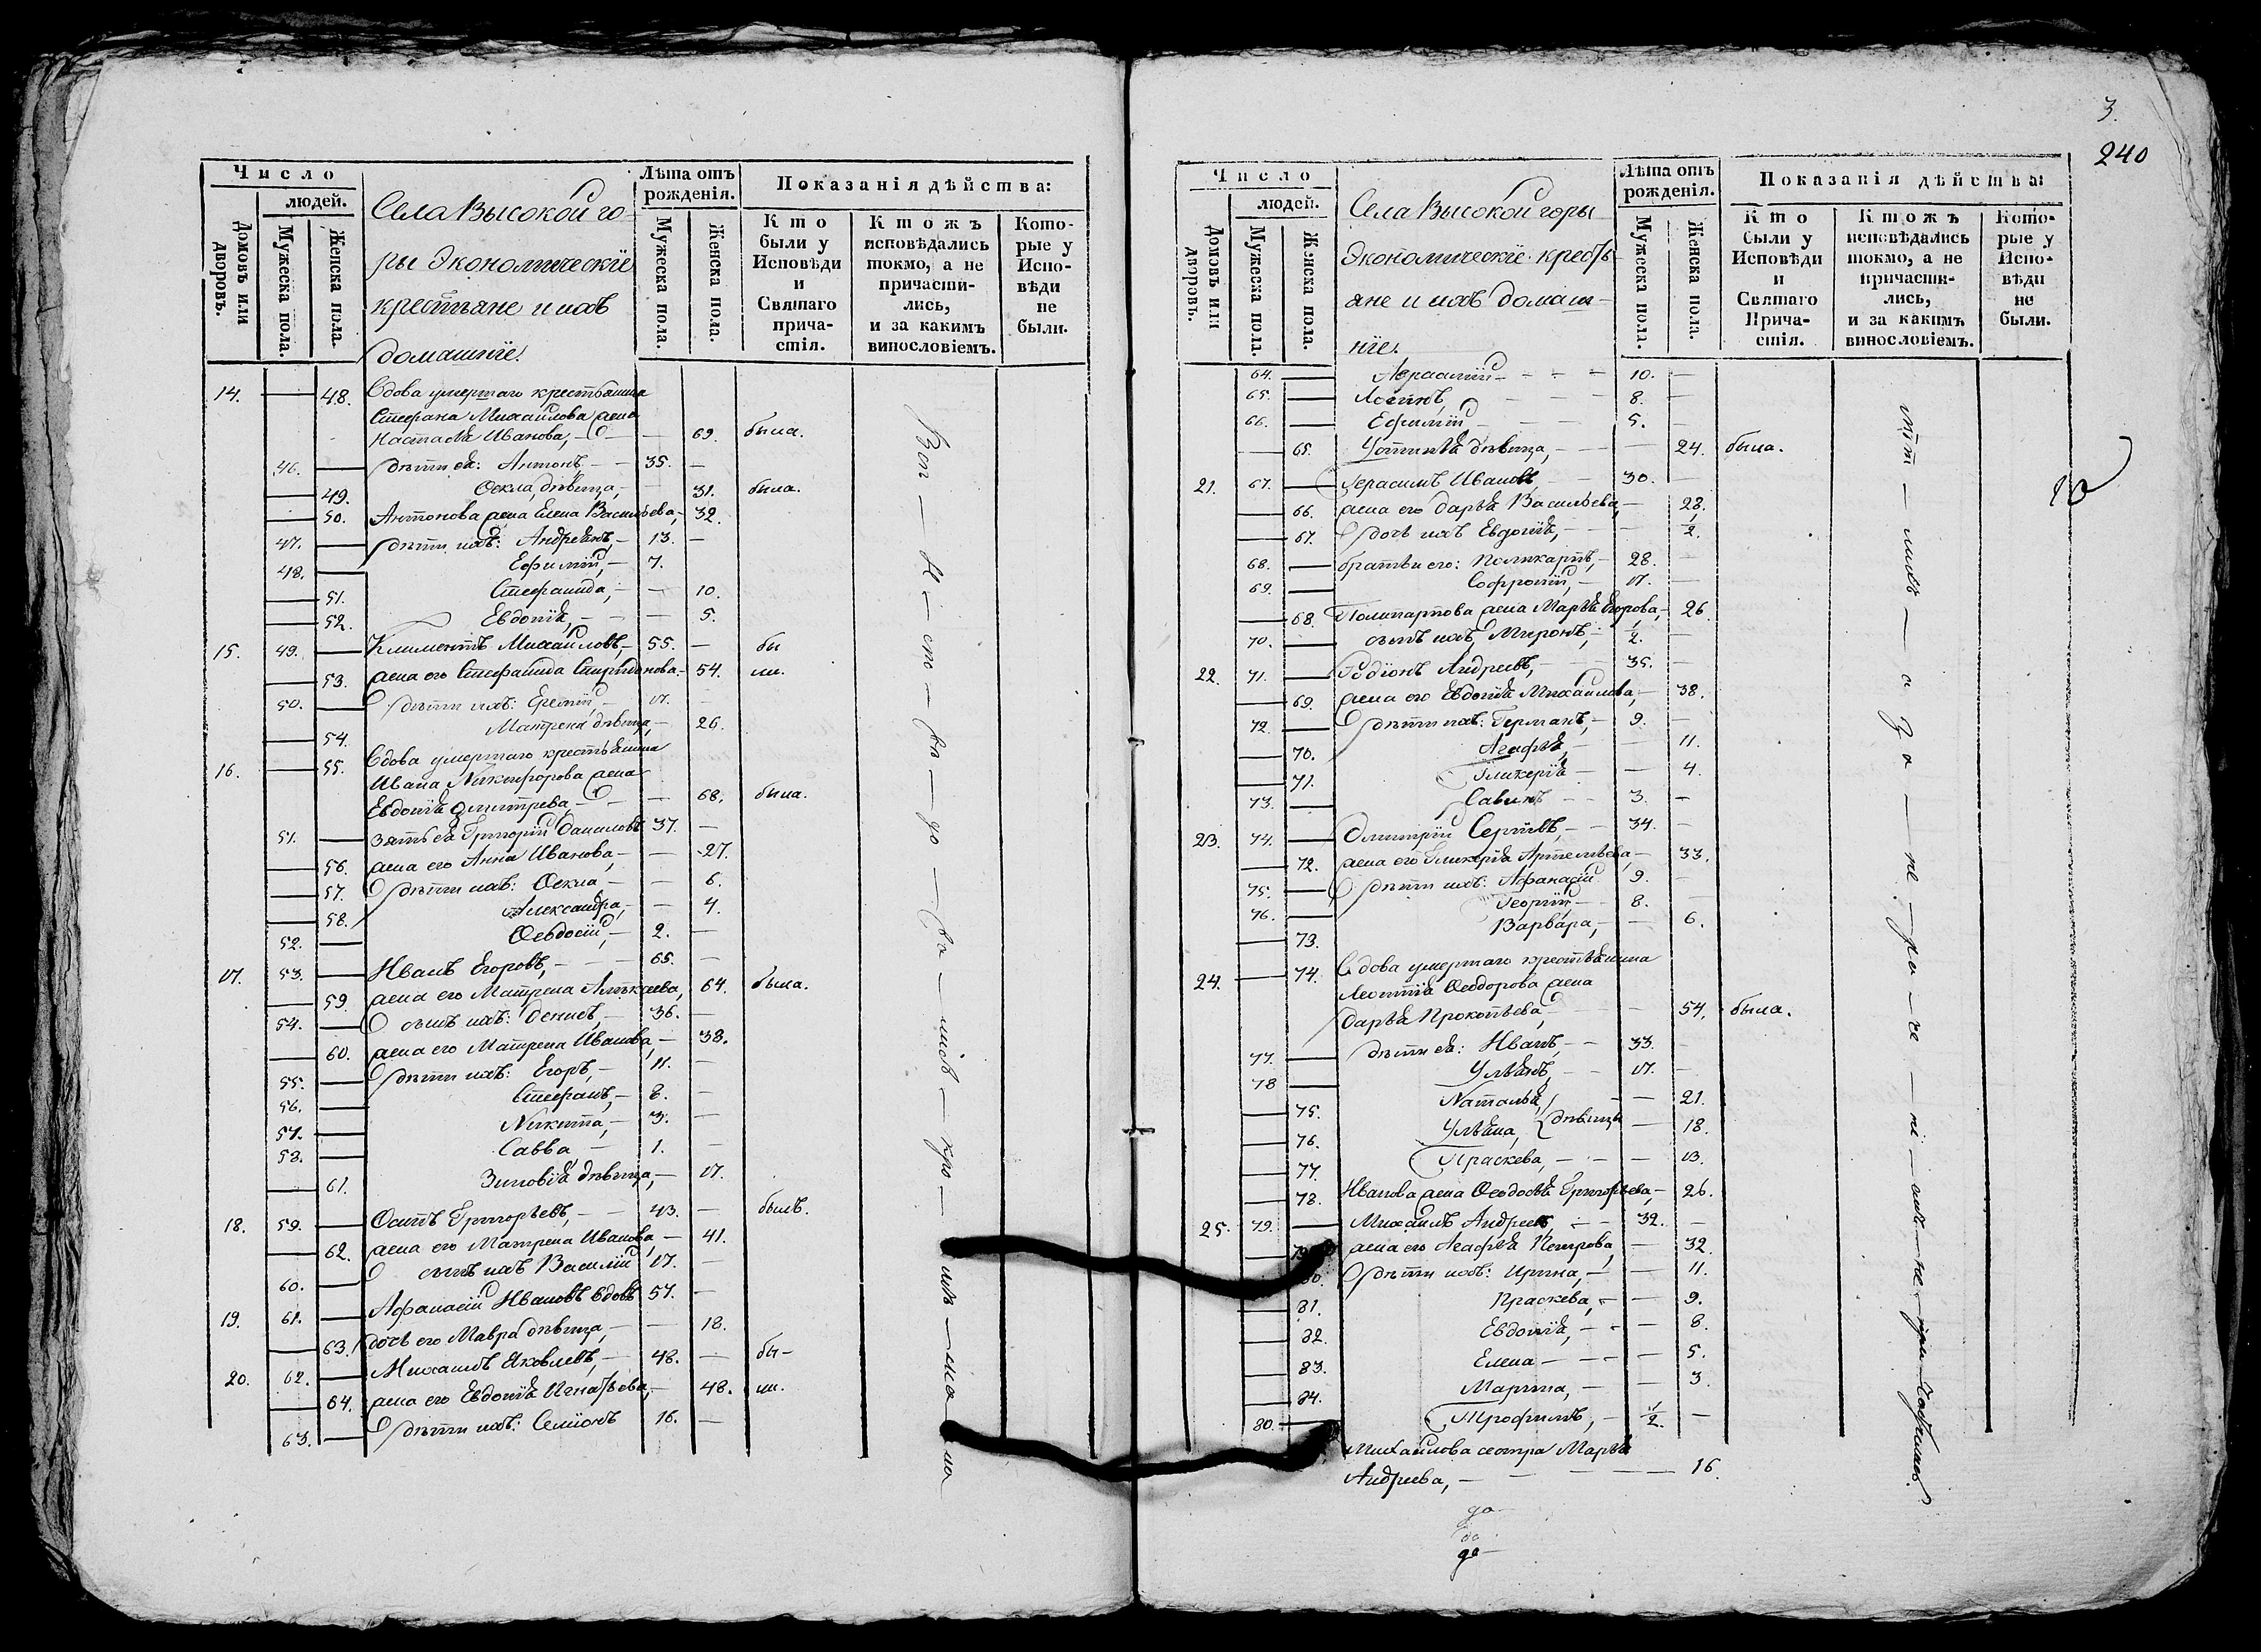 Число
людей.
Домовъ или дворовъ.
Мужеска пола.
Женска пола.
Села Высокой го-
ры Экономическіе
крестьяне и ихъ
домашніе.
Лѣта отъ рожденія.
Мужеска пола.
Женска пола.
Показанія дѣйства:
Кто были у Исповѣди и Святаго прича- стія.
Ктожъ исповѣдались токмо, а не причасти- лись, и за какимъ винословіемъ.
Кото- рые у Испо- вѣди не были.
14. 48. Вдова умершаго крестьянина
Стефана Михайлова жена
Настасья Иванова, 69. была.
46. дѣти ея: Антонъ, 35.
49. Фекла дѣвица, 31. была.
50. Антонова жена Елена Васильева, 32.
47. дѣти ихъ: Андреянъ, 13.
48. Ефимій, 7.
51. Стефанида, 10.
52. Евдокія, 5.
15. 49. Климентъ Михайловъ, 55. бы
53. жена его Стефанида Спиридонова 54. ли.
50. дѣти ихъ: 17.
54. Матрена дѣвица, 26.
16. 55. Вдова умершаго крестьянина
Ивана Никифорова жена
Евдокія Дмитрева, 68. была.
51. зять ея Григорій Даниловъ 37.
56. жена его Анна Иванова, 27.
57. дѣти ихъ: Фекла 6.
58. Александра, 4.
52. Феодосій, 2.
17. 53. Иванъ Егоровъ, 65.
59. жена его Матрена 64. была.
54. сынъ ихъ: Денисъ, 36.
60. жена его Матрена Иванова, 38.
55. дѣти ихъ: Егоръ, 11.
56. Стефанъ, 8.
57. Никита, 3.
58. Савва, 1.
61. Зиновія дѣвица, 17.
18. 59. Осипъ Григорьевъ, 43. былъ.
62. жена его Матрена Иванова, 41.
60. сынъ ихъ Василій 17.
19. 61. Афанасій Ивановъ вдовъ 57.
63. дочь его Мавра дѣвица, 18.
20. 62. Михаилъ Яковлевъ, 48. бы-
64. жена его Евдокія Игнатьева, 48. ли.
63. дѣти ихъ: Семіонъ 16.
3.
240
Число
людей.
Домовъ или дворовъ.
Мужеска пола.
Женска пола.
Села Высокой горы
Экономическіе кресть-
яне и ихъ домаш-
ніе.
Лѣта отъ рожденія.
Мужеска пола.
Женска пола.
Показанія дѣйства:
Кто были у Исповѣди и Святаго Прича- стія.
Ктожъ исповѣдались токмо, а не причасти- лись, и за какимъ винословіемъ.
Кото- рые у Испо- вѣди не были.
64. 10.
65. Логинъ, 8.
66. Ефимій 5.
65. Устинья дѣвица, 24. была.
21. 67. Герасимъ Ивановъ, 30.
66. жена его Дарья Васильева, 28.
67. дочь ихъ Евдокія, 1/2.
68. братьи его: Поликарпъ, 28.
69. Софроній, 17.
68. Поликарпова жена Марья Егорова, 26.
70. сынъ ихъ Миронъ, 1/2.
22. 71. Родіонъ Андреевъ, 35.
69. жена его Евдокія Михайлова, 38.
72. дѣти ихъ: Германъ, 9.
70. Агафья, 11.
71. Гликерія 4.
73. Савинъ 3.
23. 74. Дмитрій Сергѣевъ, 34.
72. жена его Гликерія Артемьева, 33.
75. дѣти ихъ: Афанасій 9.
76. Георгій 8.
73. Варвара, 6.
24. 74. Вдова умершаго крестьянина
Леонтія Феодорова жена
Дарья Прокопьева, 54. была.
77. дѣти ея: Иванъ, 33.
78 Ульянъ, 17.
75. Наталья, 21.
76. Ульяна, дѣвицы 18.
77. Праскева, 13.
78. Иванова жена Феодосья Григорьева, 26.
25. 79. Михаилъ Андреевъ, 32.
79. жена его Агафья Петрова, 32.
80. дѣти ихъ: Ирина, 11.
81. Праскева, 9.
82. Евдокія, 8.
83. Елена 5.
84. Марина, 3.
80. Трофимъ, 1/2.
Михайлова сестра Марья
Андреева, 16.